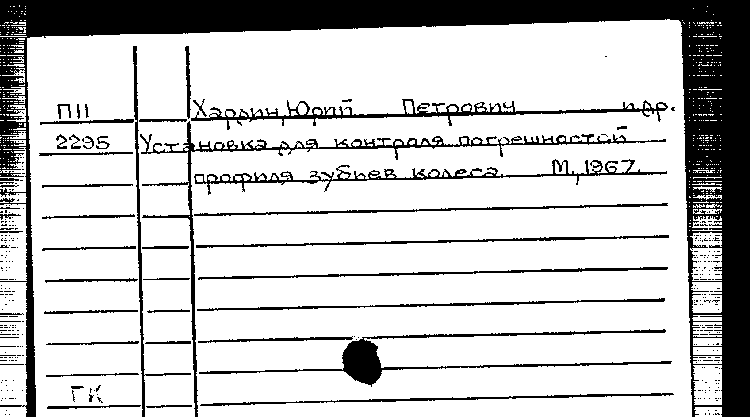 П11 Хардин, Юрий Петрович и др.
2295 Установка для контроля погрешностей
профиля зубьев колеса. М, 1967.
ГК